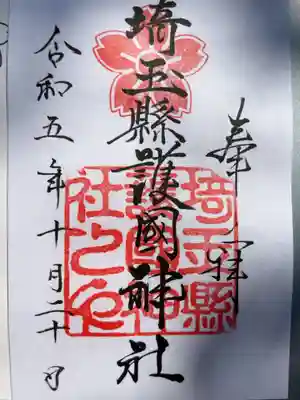 奉拝
埼玉縣護國神社
埼玉縣護國神社之印
令和五年十月二十日